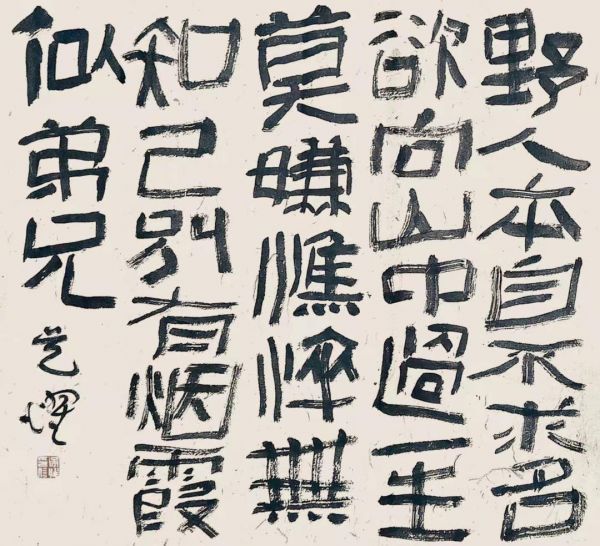 野人本自不求名
欲向山中過一生
莫嫌憔悴無
知己別有烟霞
似弟兄